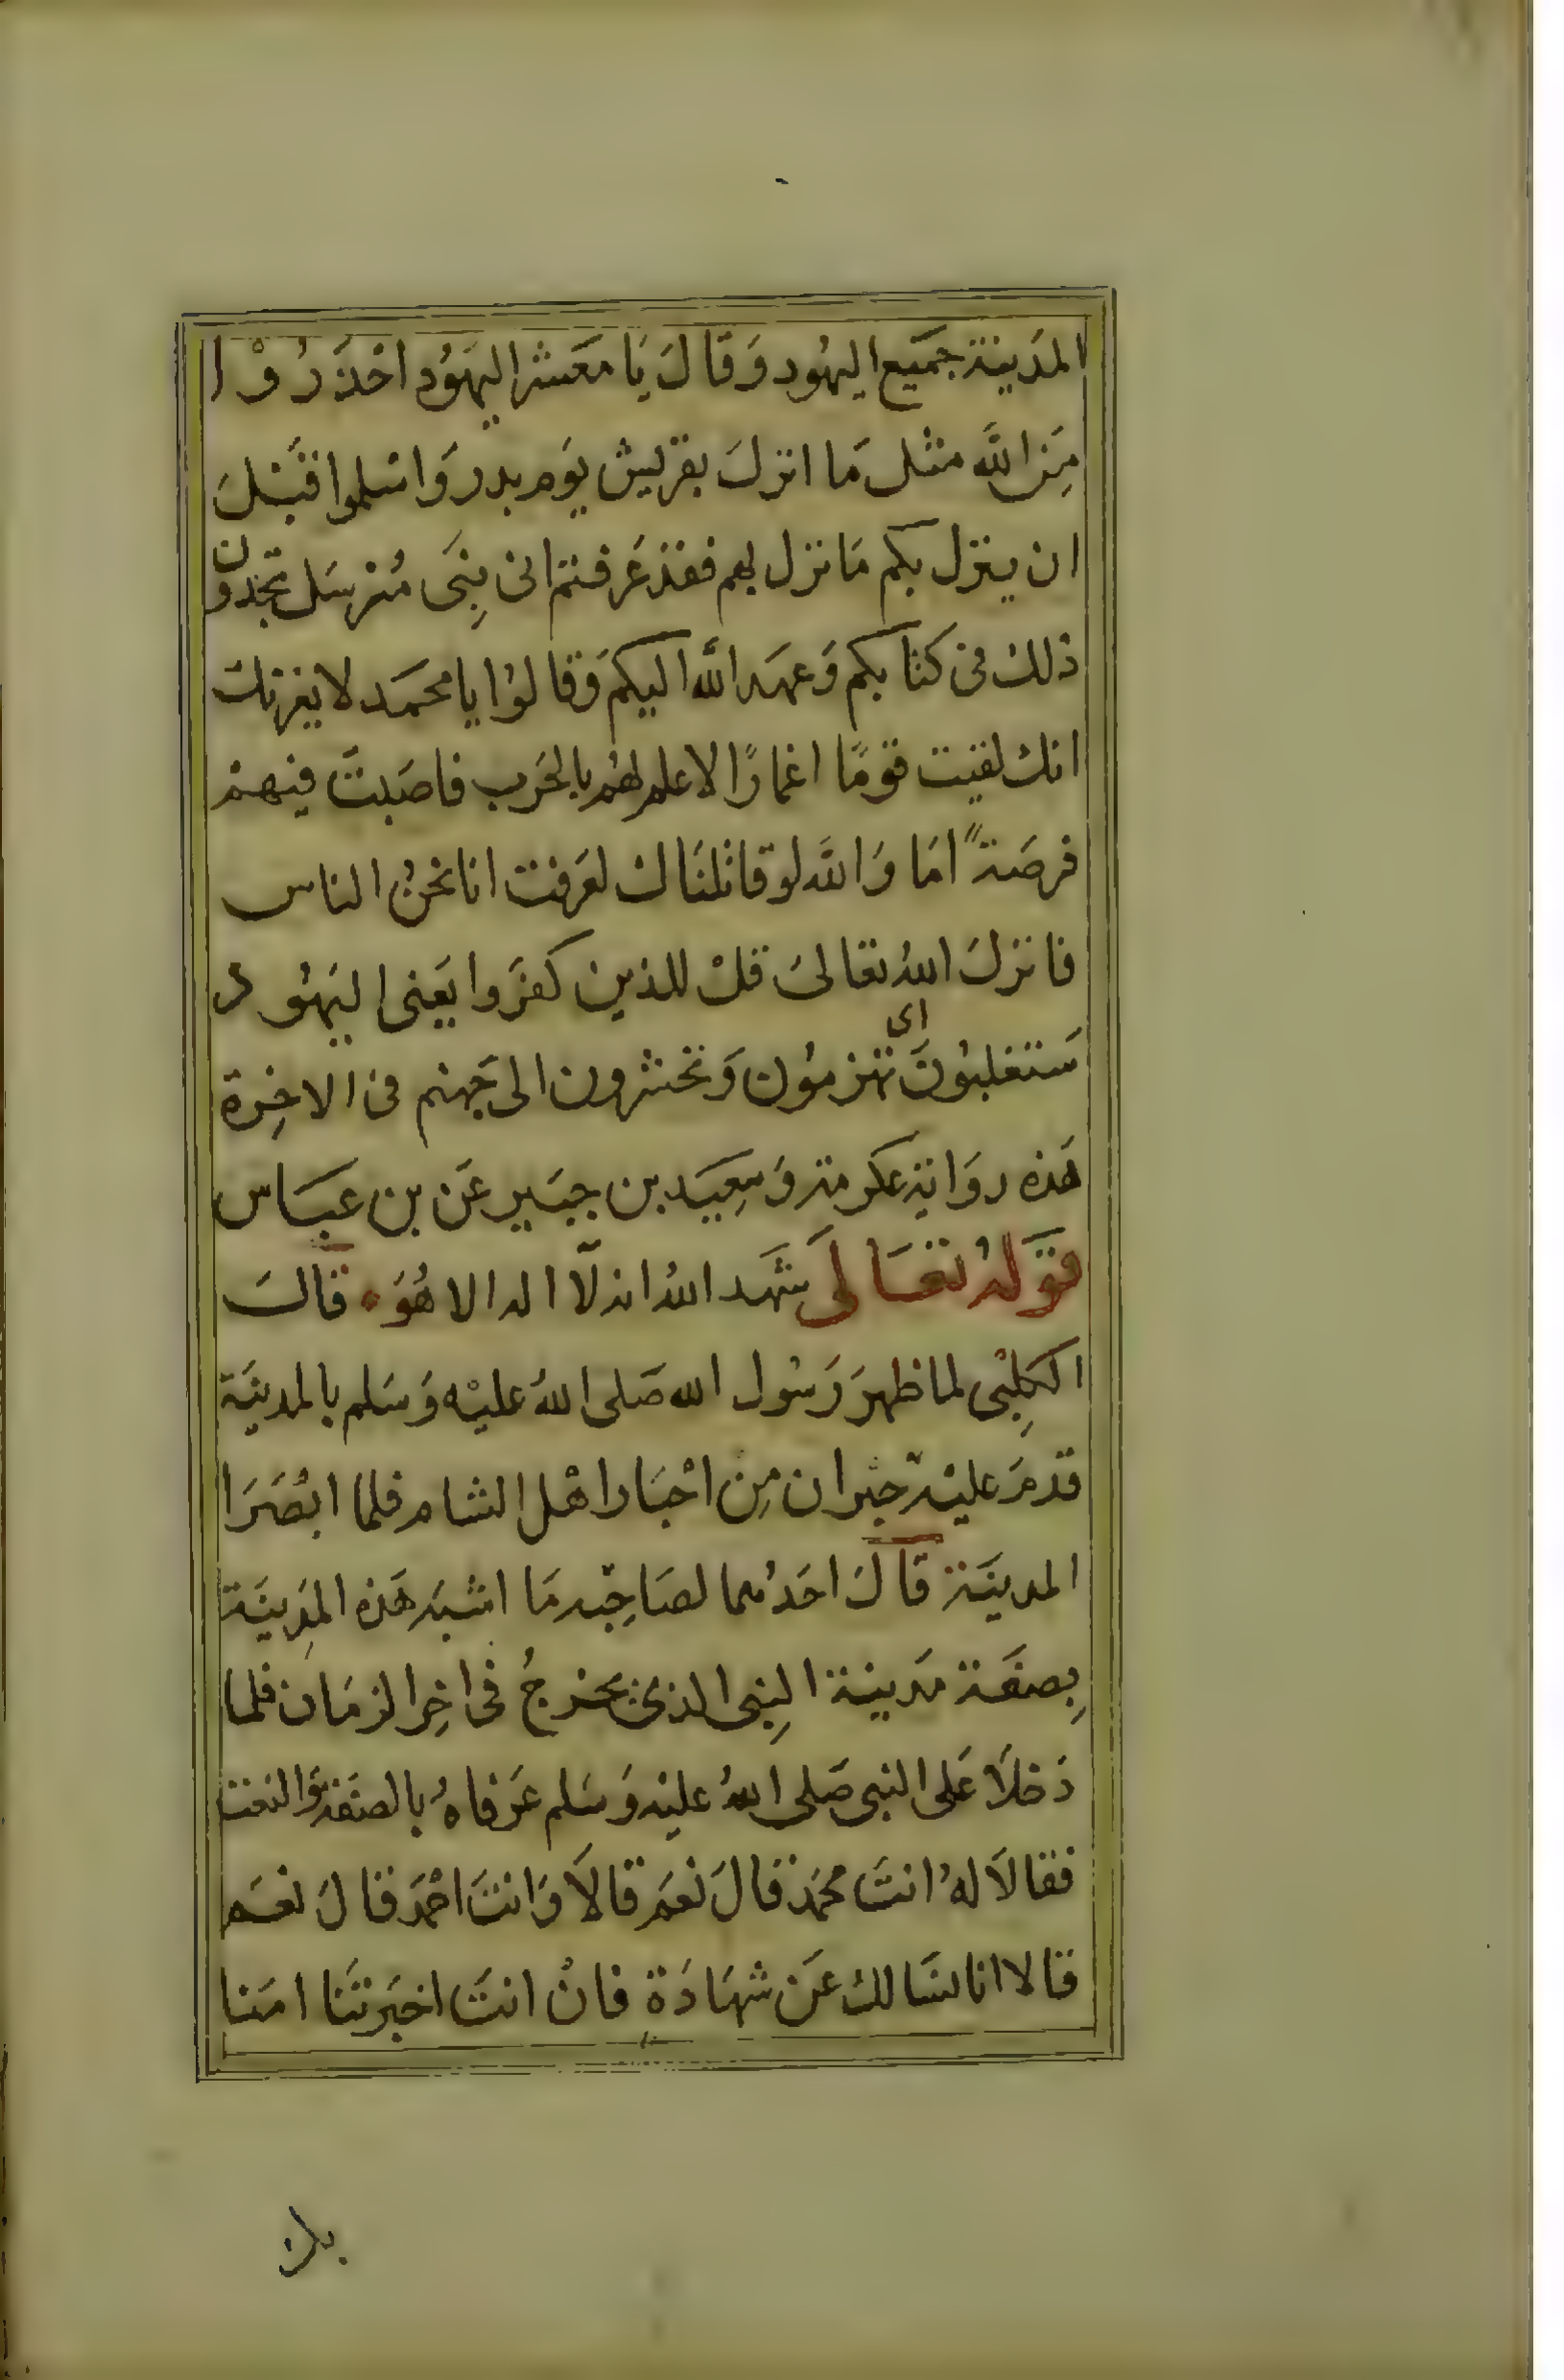 المَدينة جمَيع اليهُود وَقالَ يَا معَشر اليهَوُد احْذَرُوْا
مِنَ اللَّه مثْل مَا انزلَ بقرليش يوَم بدر وَاسْلموا قبْلَ
ان ينزل بكم مَا نزل بهم فقد عَرفتم انى نِبَى مُرسَل تجدون
ذلك فى كتابكم وَعهَد اللَّه اليكم وَقالوُا يا محمَد لا يغرنك
انك لقيت قومًا اغمارًا لا علم لهُم بالحَرب فاصَبتَ فيهمْ
فرصَةً امَا وَاللَّه لو قاتلنَاك لعَرفت انا نحنُ الناس
فانزلَ اللهُ تعَالىَ قلْ للذين كفرَوا يَعنى اليَهُود
سَتغلبُونَ اى تهزمُون وَتحشرون الى جَهنم فى الاخِرة
هَذه روَاية عكرمة وَسِعيَد بن جبَير عَن بن عبَاس
قوَلهُ تعَالَى شَهَد اللهُ انه لآ اله الا هُوَ ۰ قالَ
الكِلبْى لما ظهرَ رَسُول الله صَلى اللهُ عليْه وَسَلم بالمدينَة
قدمَ عليْه حبْران مِن احْبَار اهْل الشام فلما ابْصَرَا
المدينَة قالَ احَدُهما لصَاحِبه مَا اشبَه هَذه المِدينَة
بِصفَة مَدينة النِبى الذى يخرجُ فى اخِر الزمَان فلما
دَخلاَ عَلى النبى صَلى اللهُ عليْه وَسَلم عَرفاهُ بالصفَة وَالنعت
فقالاَ لهُ انتَ محمَد قالَ نعَم قالاَ وَانتَ احْمَد قالَ نعَم
قالا انا لسَالك عَن شهَادَة فانْ انتَ اخبَرتنَا امَنا